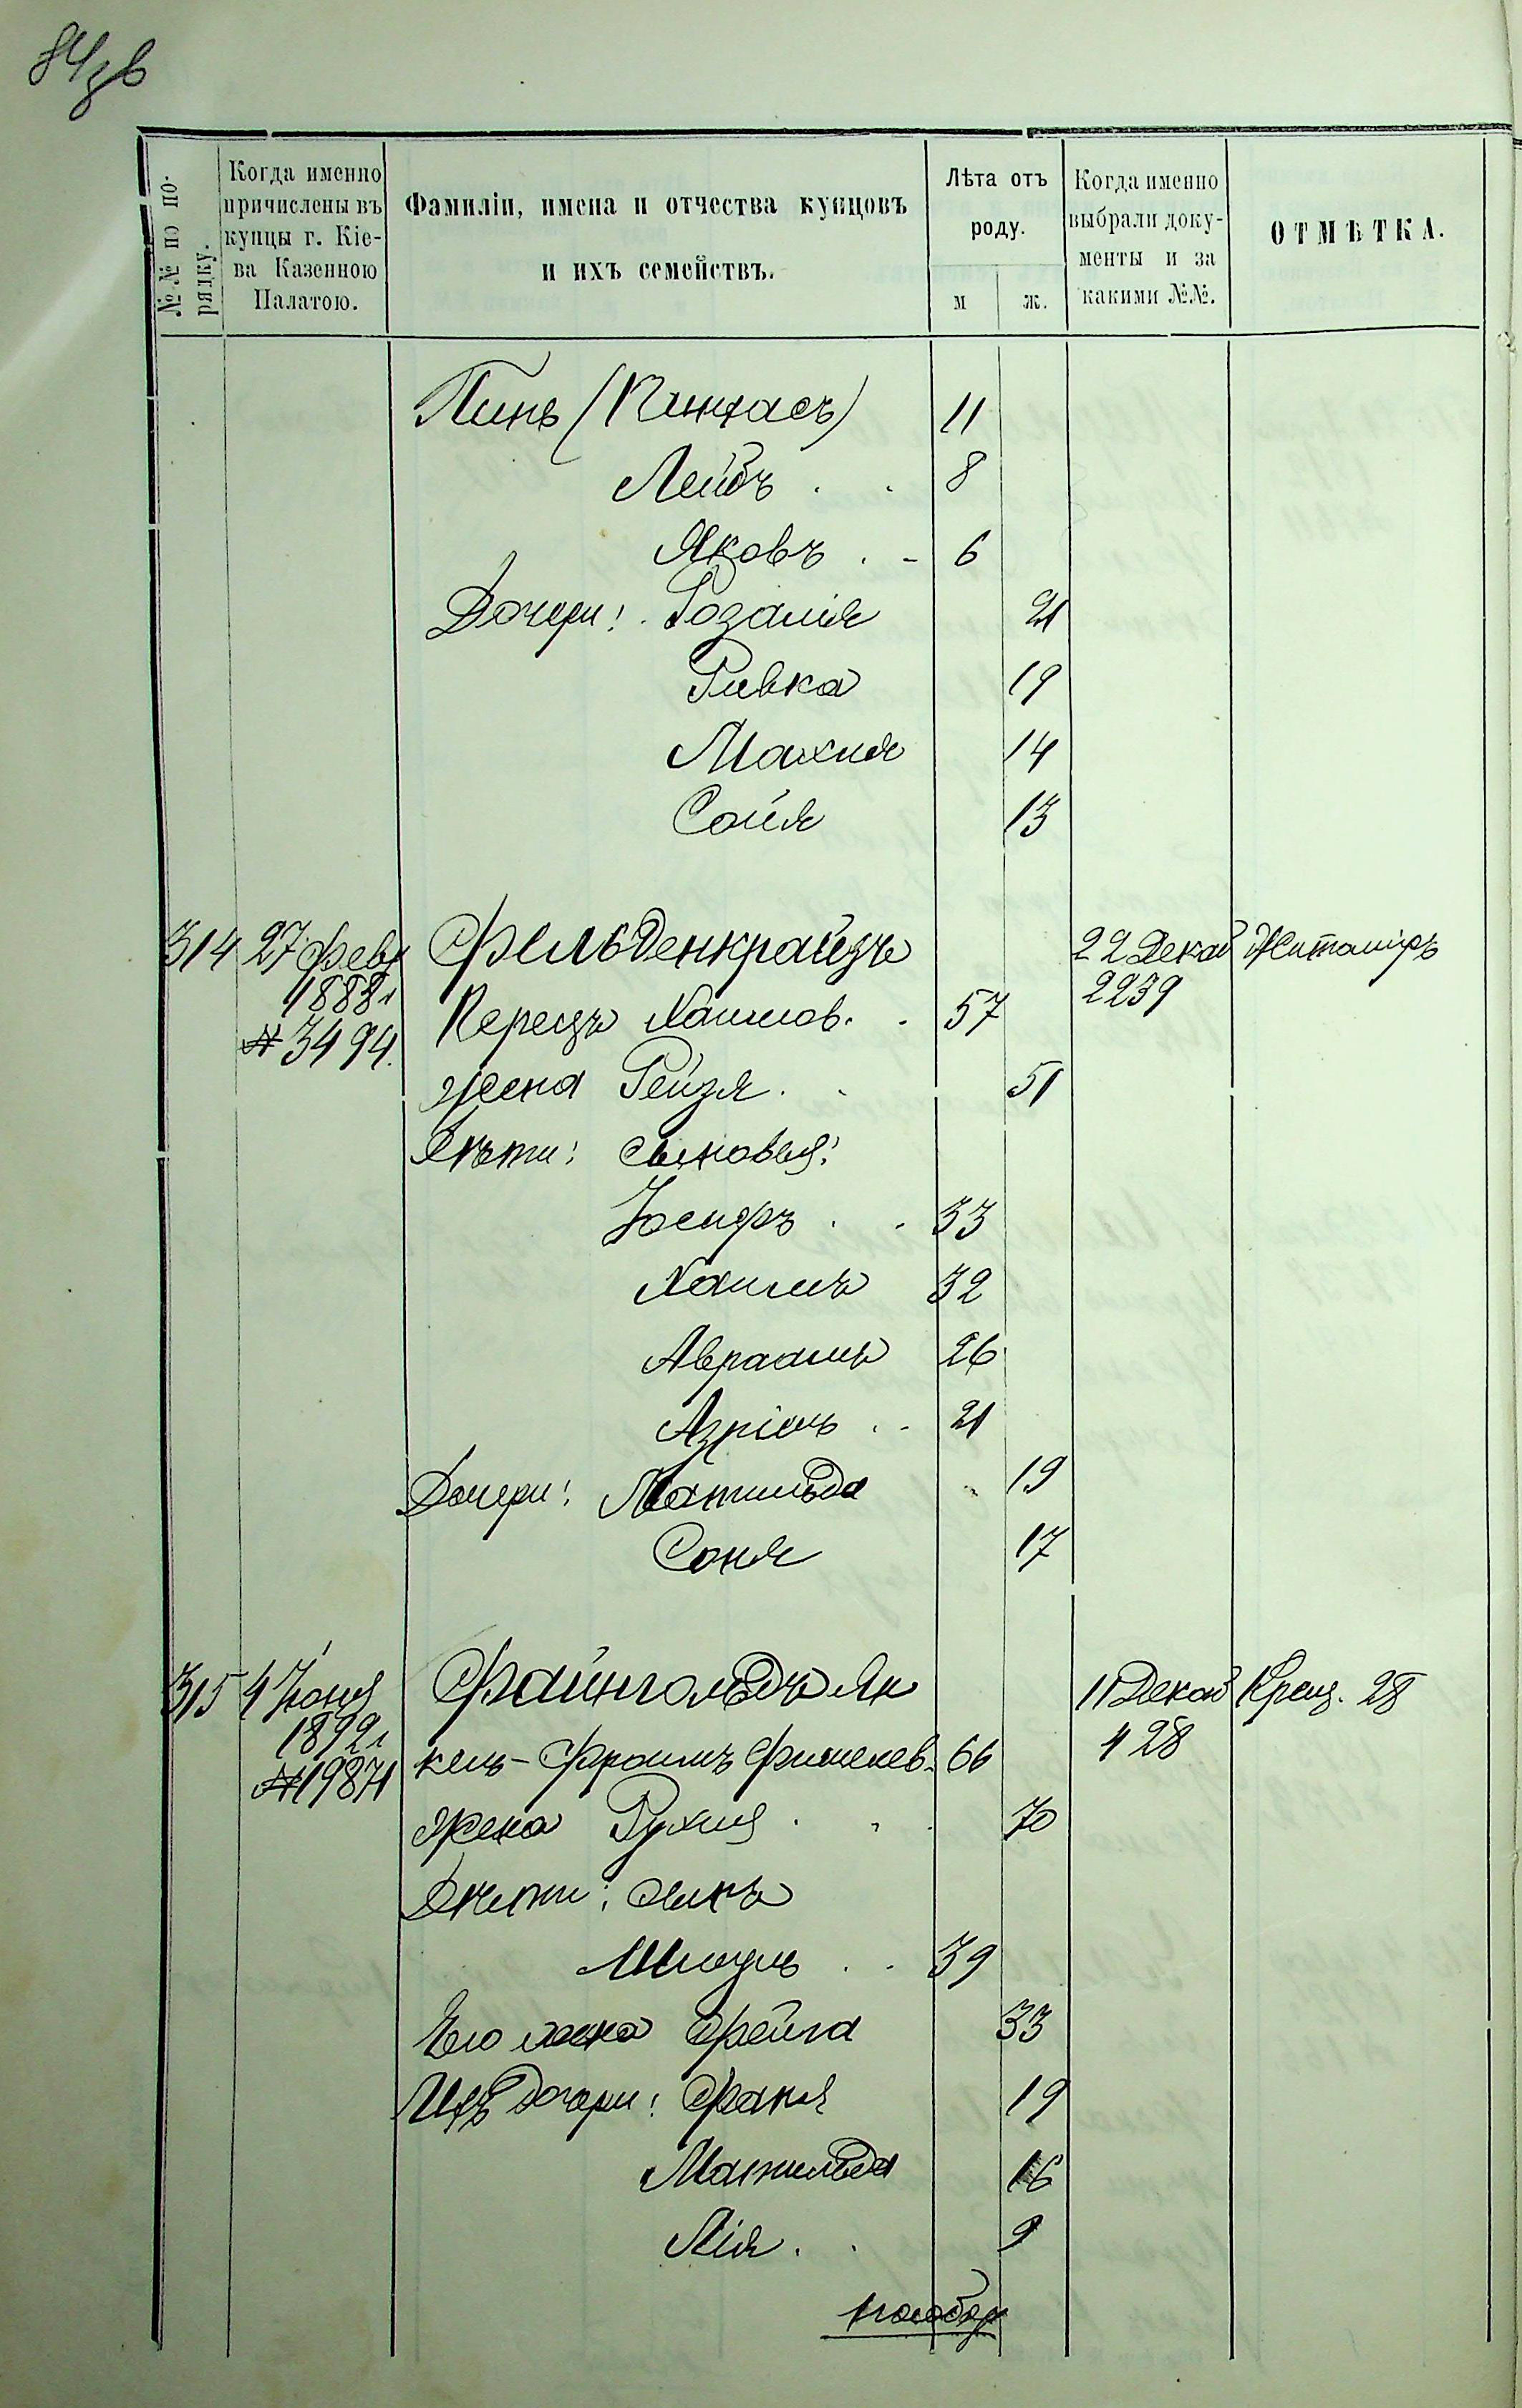 84зв
№№ по по-
рядку.
Когда именно
причислены въ
купцы г. Кіе-
ва Казенною
Палатою.
Фамиліи, имена и отчества купцовъ
и ихъ семействъ.
Лѣта отъ
роду.
м ж.
Когда именно
выбрали доку-
менты и за
какими №№.
ОТМѢТКА.
Пинь (Пинхасъ) 11
Лейбъ . . 8
Яковъ . - 6
Дочери: Розалія 21
Ривка 19
Махля 14
Сойя 13
314 27 Февр Фельденкрайзъ 22 Декаб Житоміръ
1888 г Перецъ Хаимов. . 57 2239
№ 3494. жена Рейзя . . 51
Дѣти: сыновья:
Іосифъ . . 33
Хаимъ 32
Авраамъ 26
Азріель . . 21
Дочери: Матильда 19
Соня 17
315 4 Іюня Файнгольдъ Ян 11 Декаб Крещ. 28
1892 г кель-Фроимъ Фишелев. 66 428
№ 19871 жена Рухля . . . 70
Дѣти: сынъ
Шмуль . . 39
Его жена Фейга 33
Ихъ дочери: Фаня 19
Матильда 16
Лія . . 9